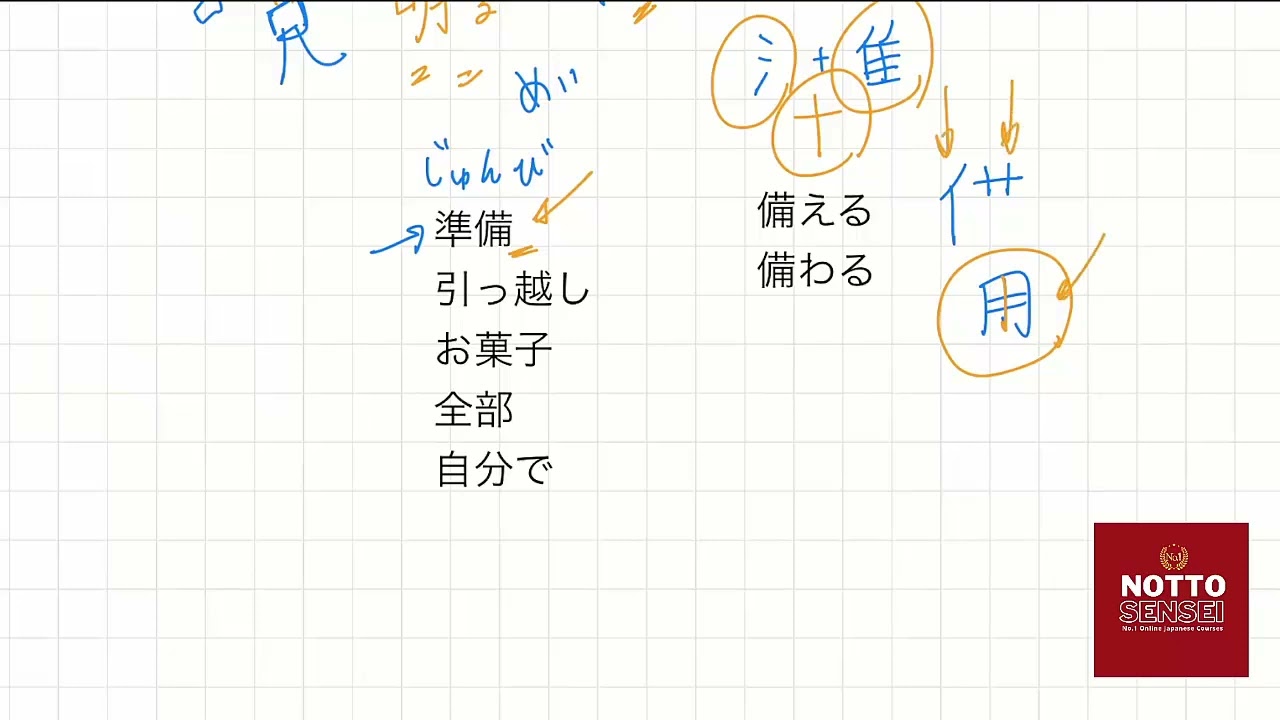 明る
めい
氵+隹
十
じゅんび
準備
引っ越し
お菓子
全部
自分で
備える
備わる
用
No.1
NOTTO
SENSEI
No.1 Online Japanese Courses